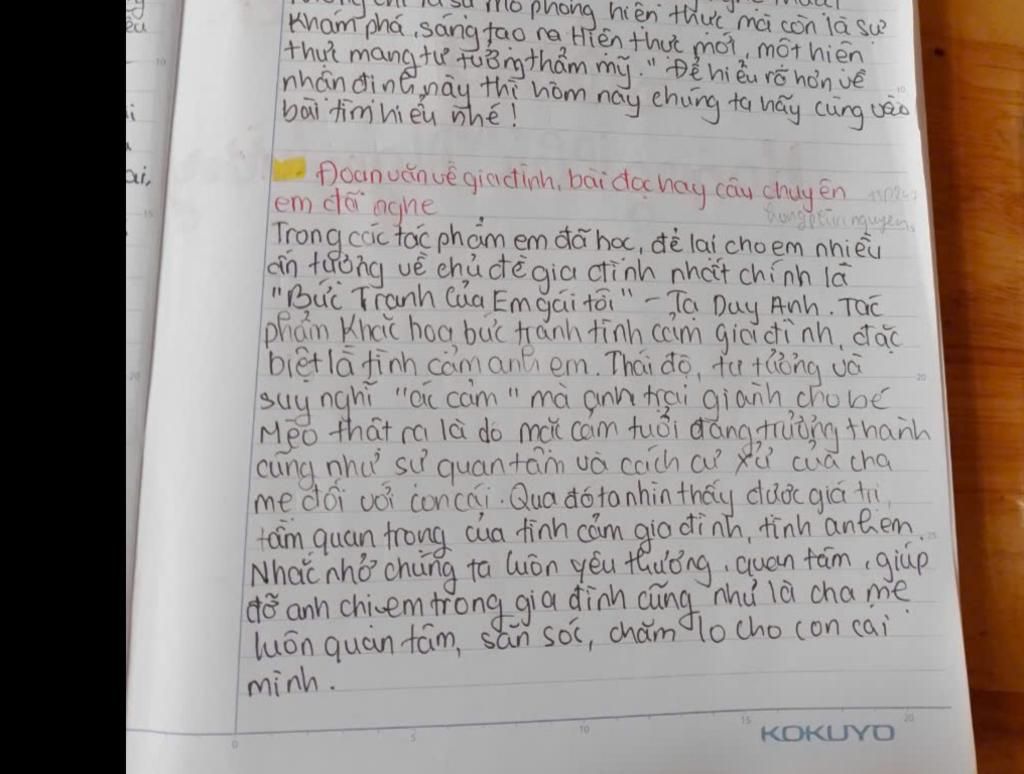 là sự mô phỏng hiện thực mà còn là sự
Khám phá, sáng tạo ra Hiện thực mới, một hiện
thực mang tư tưởng thẩm mỹ." Để hiểu rõ hơn về
nhận định này thì hôm nay chúng ta hãy cùng vào
bài tìm hiểu nhé!
Đoạn văn về gia đình, bài đọc hay câu chuyện
em đã nghe
Trong các tác phẩm em đã học, để lại cho em nhiều
ấn tượng về chủ đề gia đình nhất chính là
"Bức Tranh Của Em gái tôi" – Tạ Duy Anh. Tác
phẩm Khắc hoạ bức tranh tình cảm gia đình, đặc
biệt là tình cảm anh em. Thái độ, tư tưởng và
suy nghĩ "ác cảm" mà anh trai giành cho bé
Mèo thật ra là do mặc cảm tuổi đang trưởng thành
cũng như sự quan tâm và cách cư xử của cha
mẹ đối với con cái. Qua đó ta nhìn thấy được giá trị,
tầm quan trọng của tình cảm gia đình, tình anh em.
Nhắc nhở chúng ta luôn yêu thương, quan tâm, giúp
đỡ anh chị em trong gia đình cũng như là cha mẹ
luôn quan tâm, săn sóc, chăm lo cho con cái
mình.
0 5 10 15 20
KOKUYO